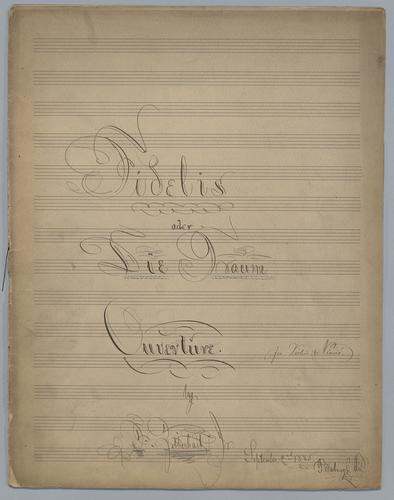 Fidelis
oder
Die Traum
Ouverture.
(for Violin & Piano.)
by.
Jr.
September 2nd